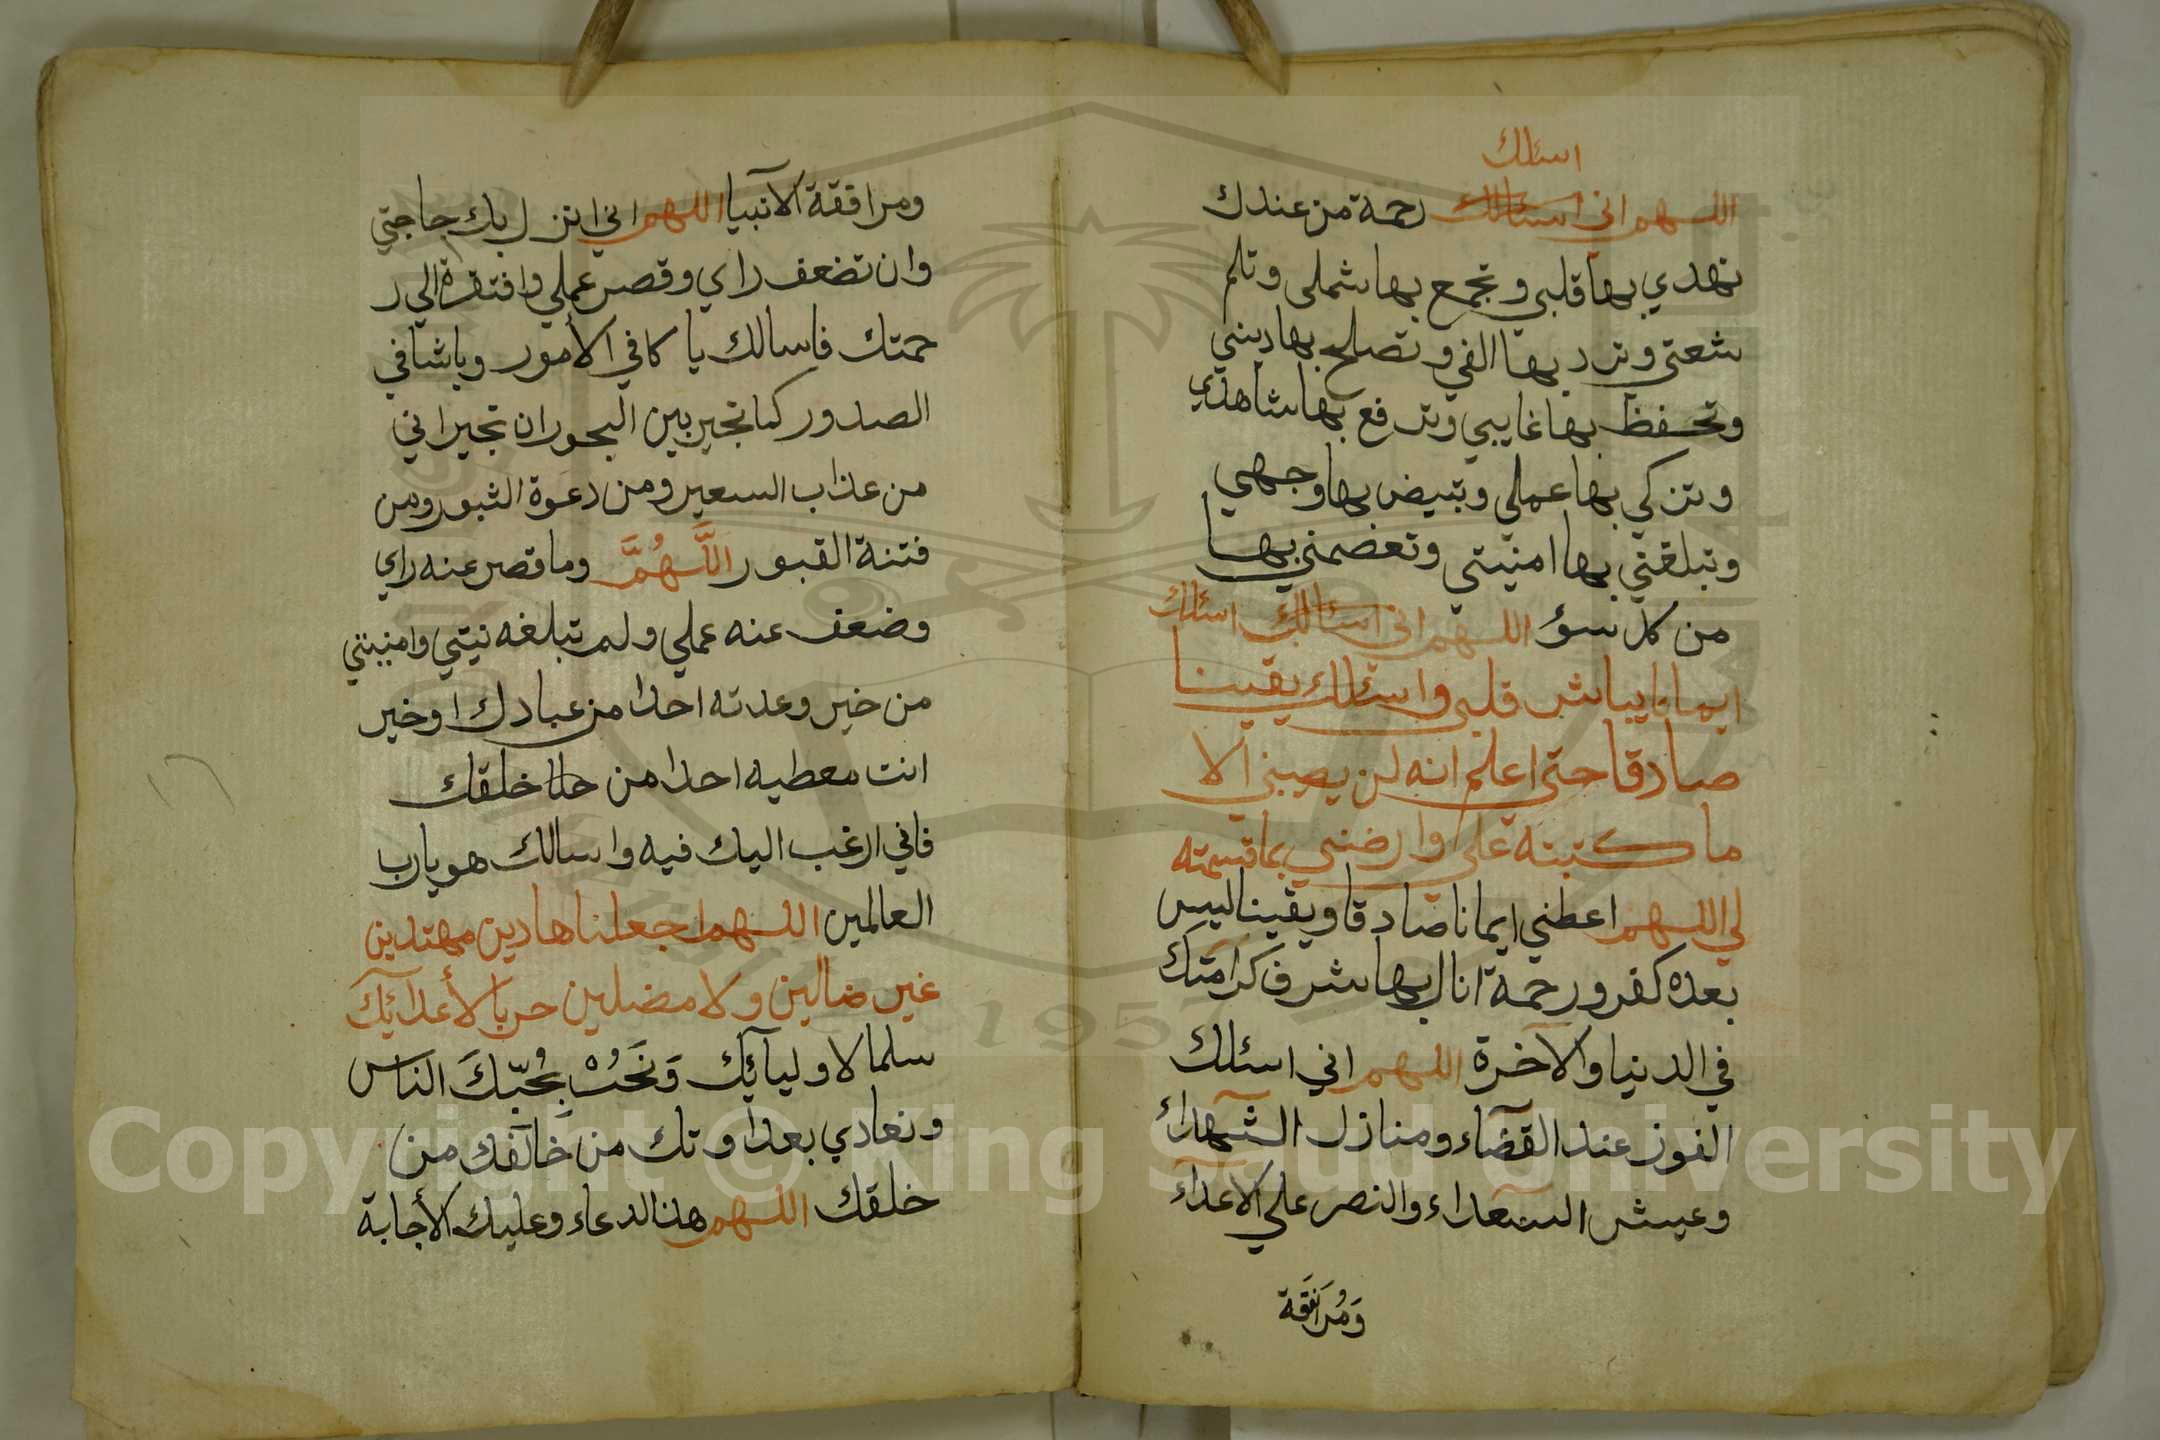 اسئلك
اللهم اني اسئالك رحمة من عندك
تهدي بها قلبي وتجمع بها شملي وتلم
شعتي وترد بها الفي وتصلح بها ديني
وتحفظ بها غايبي وترفع بها شاهدي
وتزكي بها عملي وتبيض بها وجهي
وتبلغني بها امنيتي وتعصمني بها
من كل سوؤ اللهم اني اسئالك اسئلك
ايمانا يباشر قلبي واسئلك يقينا
صادقا حتى اعلم انه لن يصيبني الا
ما كتبته علي وارضني بما قسمته
لي اللهم اعطني ايمانا صادقا ويقينا ليس
بعده كفر ورحمة انال بها شرف كرامتك
في الدنيا والآخرة اللهم اني اسئلك
الفوز عند القضاء ومنازل الشهداء
وعيش السعداء والنصر علي الاعداء
وَمُرَافَقَة
ومرافقة الآنبيا اللهم اني انزل بك حاجتي
وان تضعف راي وقصر عملي وافتقرة الي ر
حمتك فاسالك يا كافي الأمور وياشافي
الصدور كما تجير بين البحور ان تجيراني
من عذاب السعير ومن دعوة الثبور ومن
فتنة القبور اللَّهُمَّ وما قصر عنه راي
وضعف عنه عملي ولم تبلغه نيتي وامنيتي
من خير وعدته احدا من عبادك او خير
انت معطيه احدا من خلقك
فاني ارغب اليك فيه واسالك هو يارب
العالمين اللهم اجعلنا هادين مهتدين
غير ضالين ولا مضلين حربا لأعدائك
سلما لاوليآئك وَنَحُبْ بِحُبّكَ الناس
ونعادي بعداوتك من خالفك من
خلقك اللهم هذا لدعاء وعليك الأجابة
Copyright © King Saud University
1957